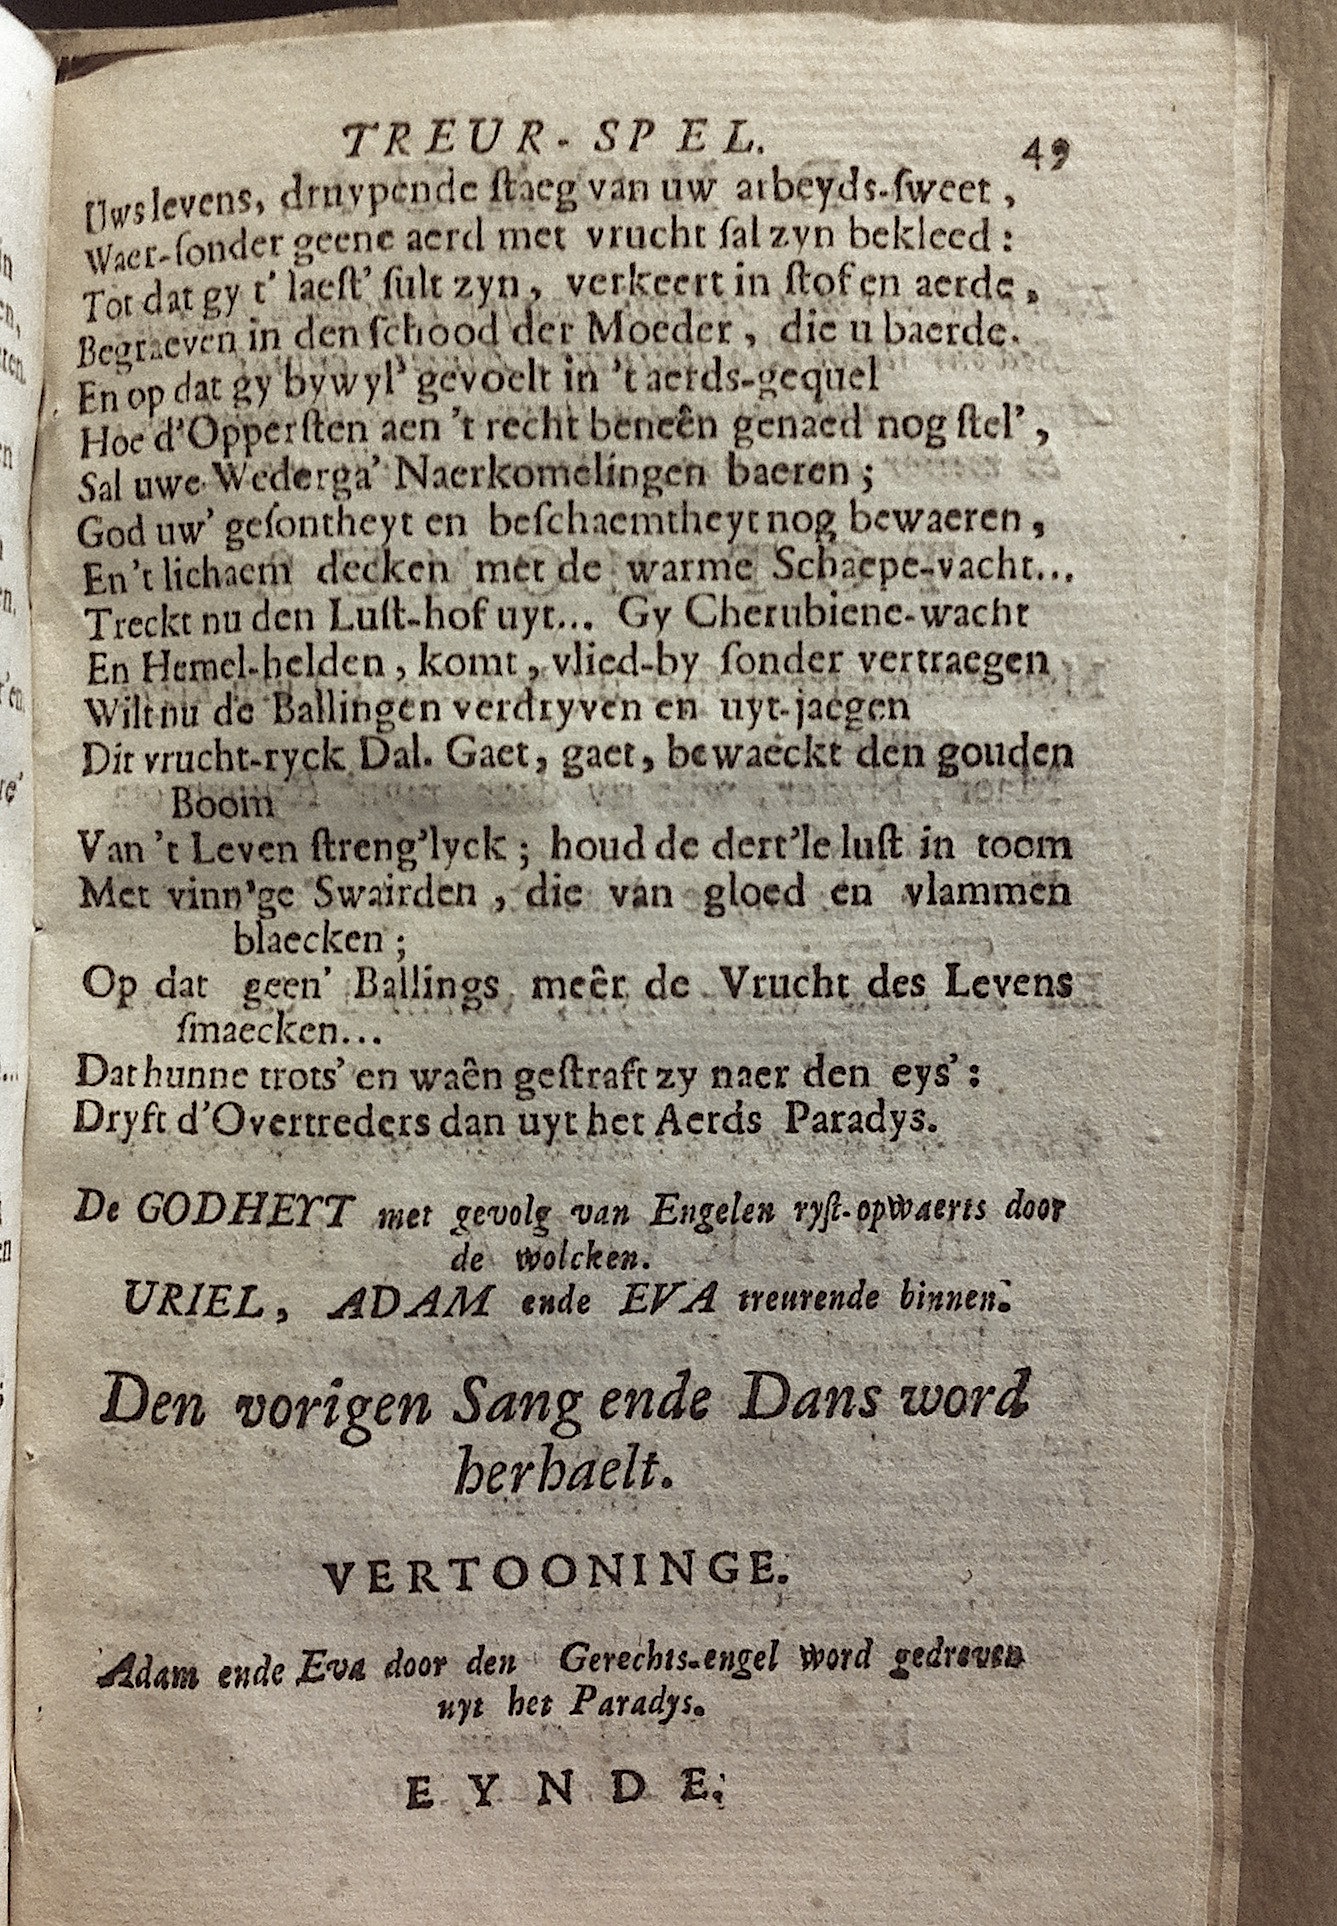 TREUR-SPEL. 49
Uws levens, druypende ſtaeg van uw arbeyds-ſweet,
Waer-ſonder geene aerd met vrucht ſal zyn bekleed:
Tot dat gy t' laeſt' ſult zyn, verkeert in ſtof en aerde,
Begraeven in den ſchood der Moeder, die u baerde.
En op dat gy bywyl' gevoelt in 't aerds-gequel
Hoe d'Opperſten aen 't recht beneên genaed nog ſtel',
Sal uwe Wederga' Naerkomelingen baeren;
God uw' geſontheyt en beſchaemtheyt nog bewaeren,
En 't lichaem decken met de warme Schaepe-vacht...
Treckt nu den Luſt-hof uyt... Gy Cherubiene-wacht
En Hemel-helden, komt, vlied-by ſonder vertraegen
Wilt nu de Ballingen verdryven en uyt-jaegen
Dit vrucht-ryck Dal. Gaet, gaet, bewaeckt den gouden
Boom
Van 't Leven ſtreng'lyck; houd de dert'le luſt in toom
Met vinn'ge Swairden, die van gloed en vlammen
blaecken;
Op dat geen' Ballings meêr de Vrucht des Levens
ſmaecken...
Dat hunne trots' en waên geſtraft zy naer den eys':
Dryft d'Overtreders dan uyt het Aerds Paradys.
De GODHEYT met gevolg van Engelen ryſt-opwaerts door
de wolcken.
URIEL, ADAM ende EVA treurende binnen.
Den vorigen Sang ende Dans word
herhaelt.
VERTOONINGE.
Adam ende Eva door den Gerechts-engel word gedreven
uyt het Paradys.
EYNDE.